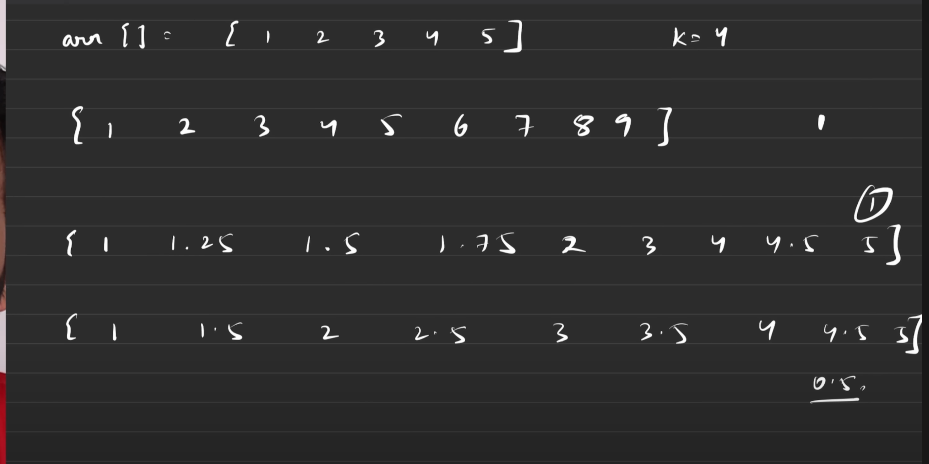 arr [] = [ 1 2 3 4 5 ] K = 4
[ 1 2 3 4 5 6 7 8 9 ] 1
1
[ 1 1.25 1.5 1.75 2 3 4 4.5 5 ]
[ 1 1.5 2 2.5 3 3.5 4 4.5 5 ]
0.5.